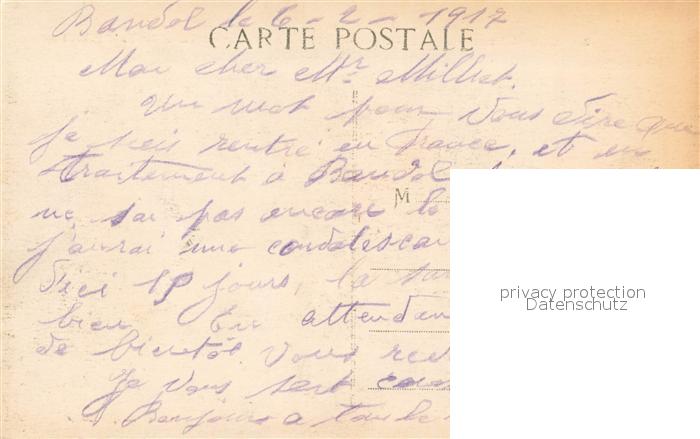 Bandol le 6 - 2 - 1917
CARTE POSTALE
Mon cher Mr Milliet.
Un mot pour vous dire que
je suis rentré en France, et en
traitement a Bandol
M
ne sai pas encore le
j'aurai une
D'ici 15 jours, la
bien En attendan
de bientôt vous
Je vous sert
Bonjour a tou le
privacy protection
Datenschutz